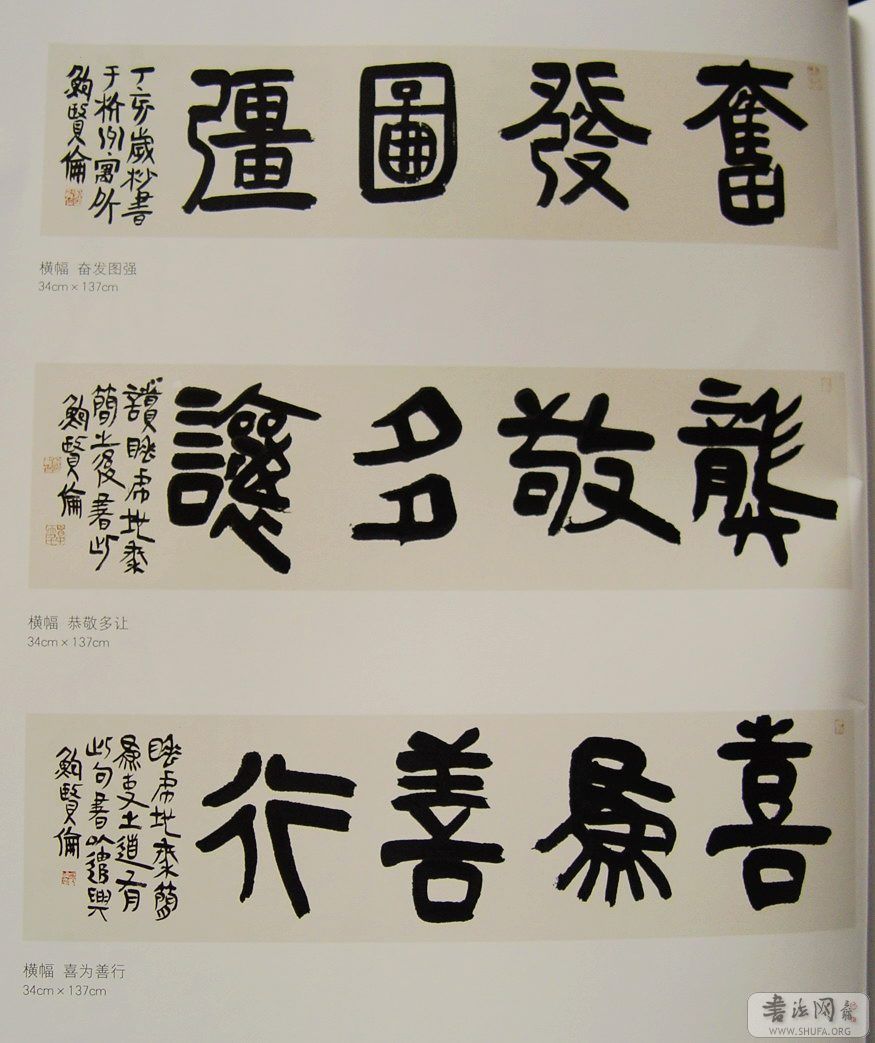 奮發圖彊
丁亥歲杪書
于杭州寓所
鮑賢倫
横幅 奋发图强
34cm × 137cm
龏敬多讓
讀睡虎地秦
簡之後書此
鮑賢倫
横幅 恭敬多让
34cm × 137cm
喜為善行
睡虎地秦簡
為吏之道有
此句書以遣興
鮑賢倫
横幅 喜为善行
34cm × 137cm
書法网
WWW.SHUFA.ORG